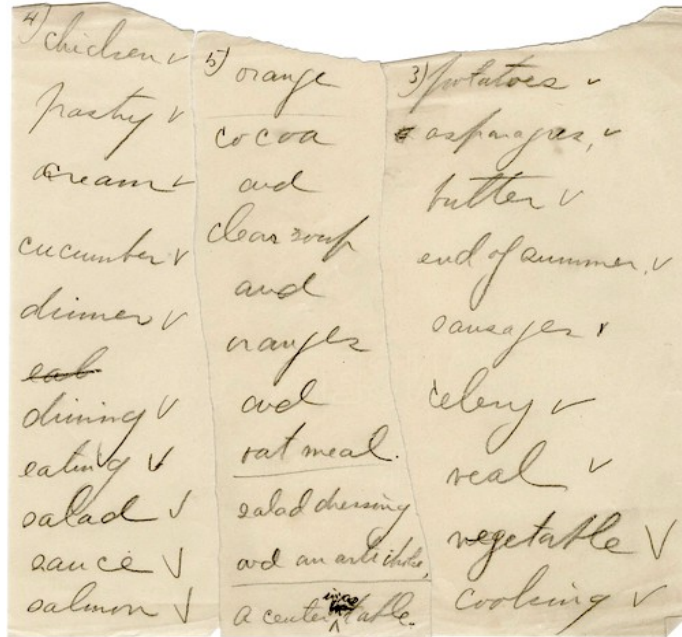 4)
chicken ✓
pastry ✓
cream ✓
cucumber ✓
dinner ✓
eat
dining ✓
eating ✓
salad ✓
sauce ✓
salmon ✓
5) orange
cocoa
and
clear soup
and
oranges
and
oat meal.
salad dressing
and an artichoke,
a center in a table.
3) potatoes ✓
asparagus, ✓
butter ✓
end of summer, ✓
sausages ✓
celery ✓
veal ✓
vegetable ✓
cooking ✓